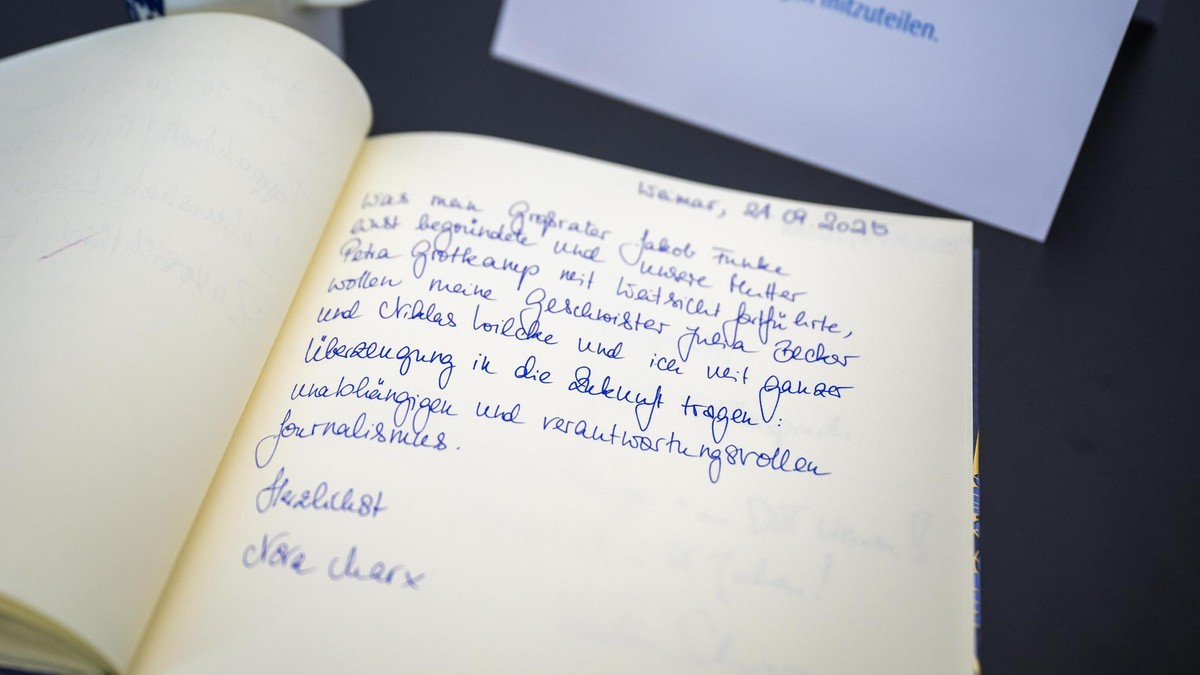 mitzuteilen.
Weimar, 21.09.2025
was mein Großvater Jakob Funke
einst begründete und unsere Mutter
Petra Grotkamp mit Weitsicht fortführte,
wollen meine Geschwister Julia Becker
und Niklas Wilcke und ich mit ganzer
Überzeugung in die Zukunft tragen:
unabhängigen und verantwortungsvollen
Journalismus.
Herzlichst
Nora Marx